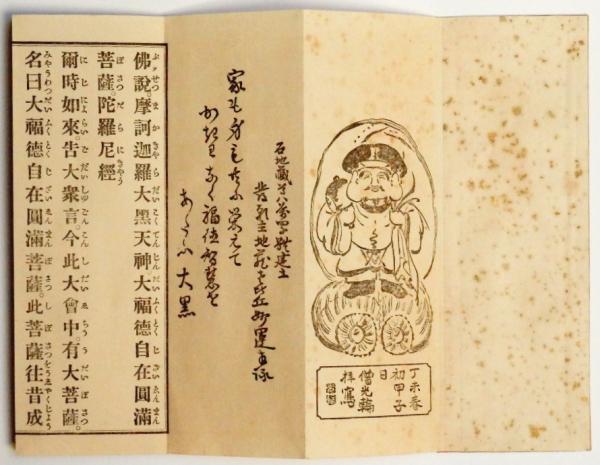 丁未春
初甲子
日
僧光
拝寫
石地蔵八萬四千躰建立
発願主地蔵比丘妙運自詠
家も身も共に栄えて
かぎりなく福徳智慧を
あたふ大黒
佛說。摩訶迦羅大黑天神大福德自在圓滿
菩薩。陀羅尼經
爾時如來。吿大衆言。今此大會中。有大菩薩。
名曰大福德自在圓滿菩薩。此菩薩往昔成